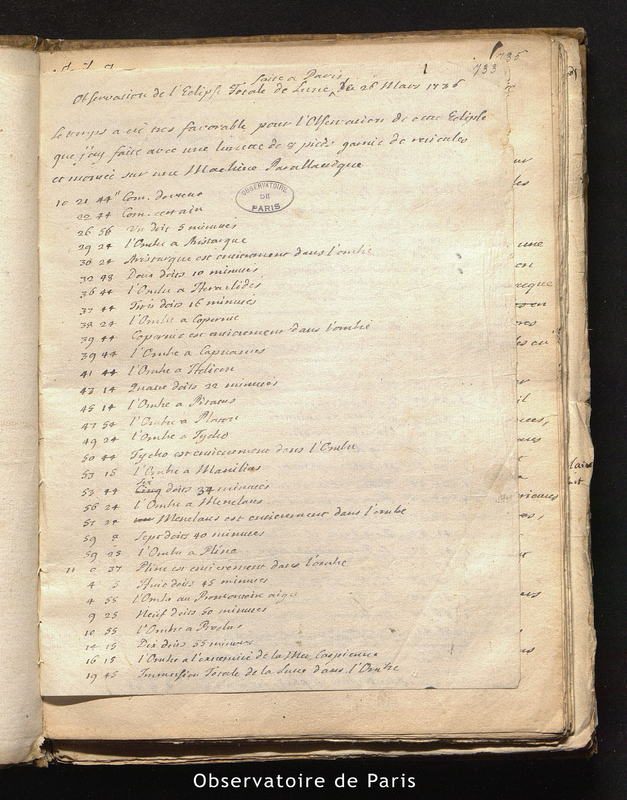 735
733
1
faite a Paris
Observation de l'Eclipse Totale de Lune, du 26 Mars 1736
Le temps a été tres favorable pour l'Observation de cette Eclipse
que j'ay faite avec une lunette de 8 pieds garnie de reticules
et montée sur une Machine Parallactique
OBSERVATOIRE DE PARIS
10 21 44" Com. douteux
22 44 Com. certain
26 56 Un doit 5 minutes
29 24 l'Ombre a Aristarque
30 24 Aristarque est entierement dans l'ombre
32 48 Deux doits 10 minutes
36 44 l'Ombre a Heraclides
37 44 Trois doits 16 minutes
38 24 l'Ombre a Copernic
39 44 Copernic est entierement dans l'ombre
39 44 l'Ombre a Capuanus
41 44 l'Ombre a Helicon
43 14 Quatre doits 22 minutes
45 14 l'Ombre a Pitatus
47 54 l'Ombre a Platon
49 24 l'Ombre a Tycho
50 44 Tycho est entierement dans l'Ombre
53 15 l'Ombre a Manilius
53 44 Six doits 34 minutes
56 24 l'Ombre a Menelaus
57 24 Menelaus est entierement dans l'ombre
59 8 Sept doits 40 minutes
59 25 l'Ombre a Pline
11 0 37 Pline est entierement dans l'ombre
4 5 Huit doits 45 minutes
4 55 l'Ombre au Promontoire aigu
9 25 Neuf doits 50 minutes
10 55 l'Ombre a Proclus
14 15 Dix doits 55 minutes
16 15 l'Ombre a l'extremité de la Mer Caspienne
19 45 Immersion Totale de la Lune dans l'Ombre
Observatoire de Paris